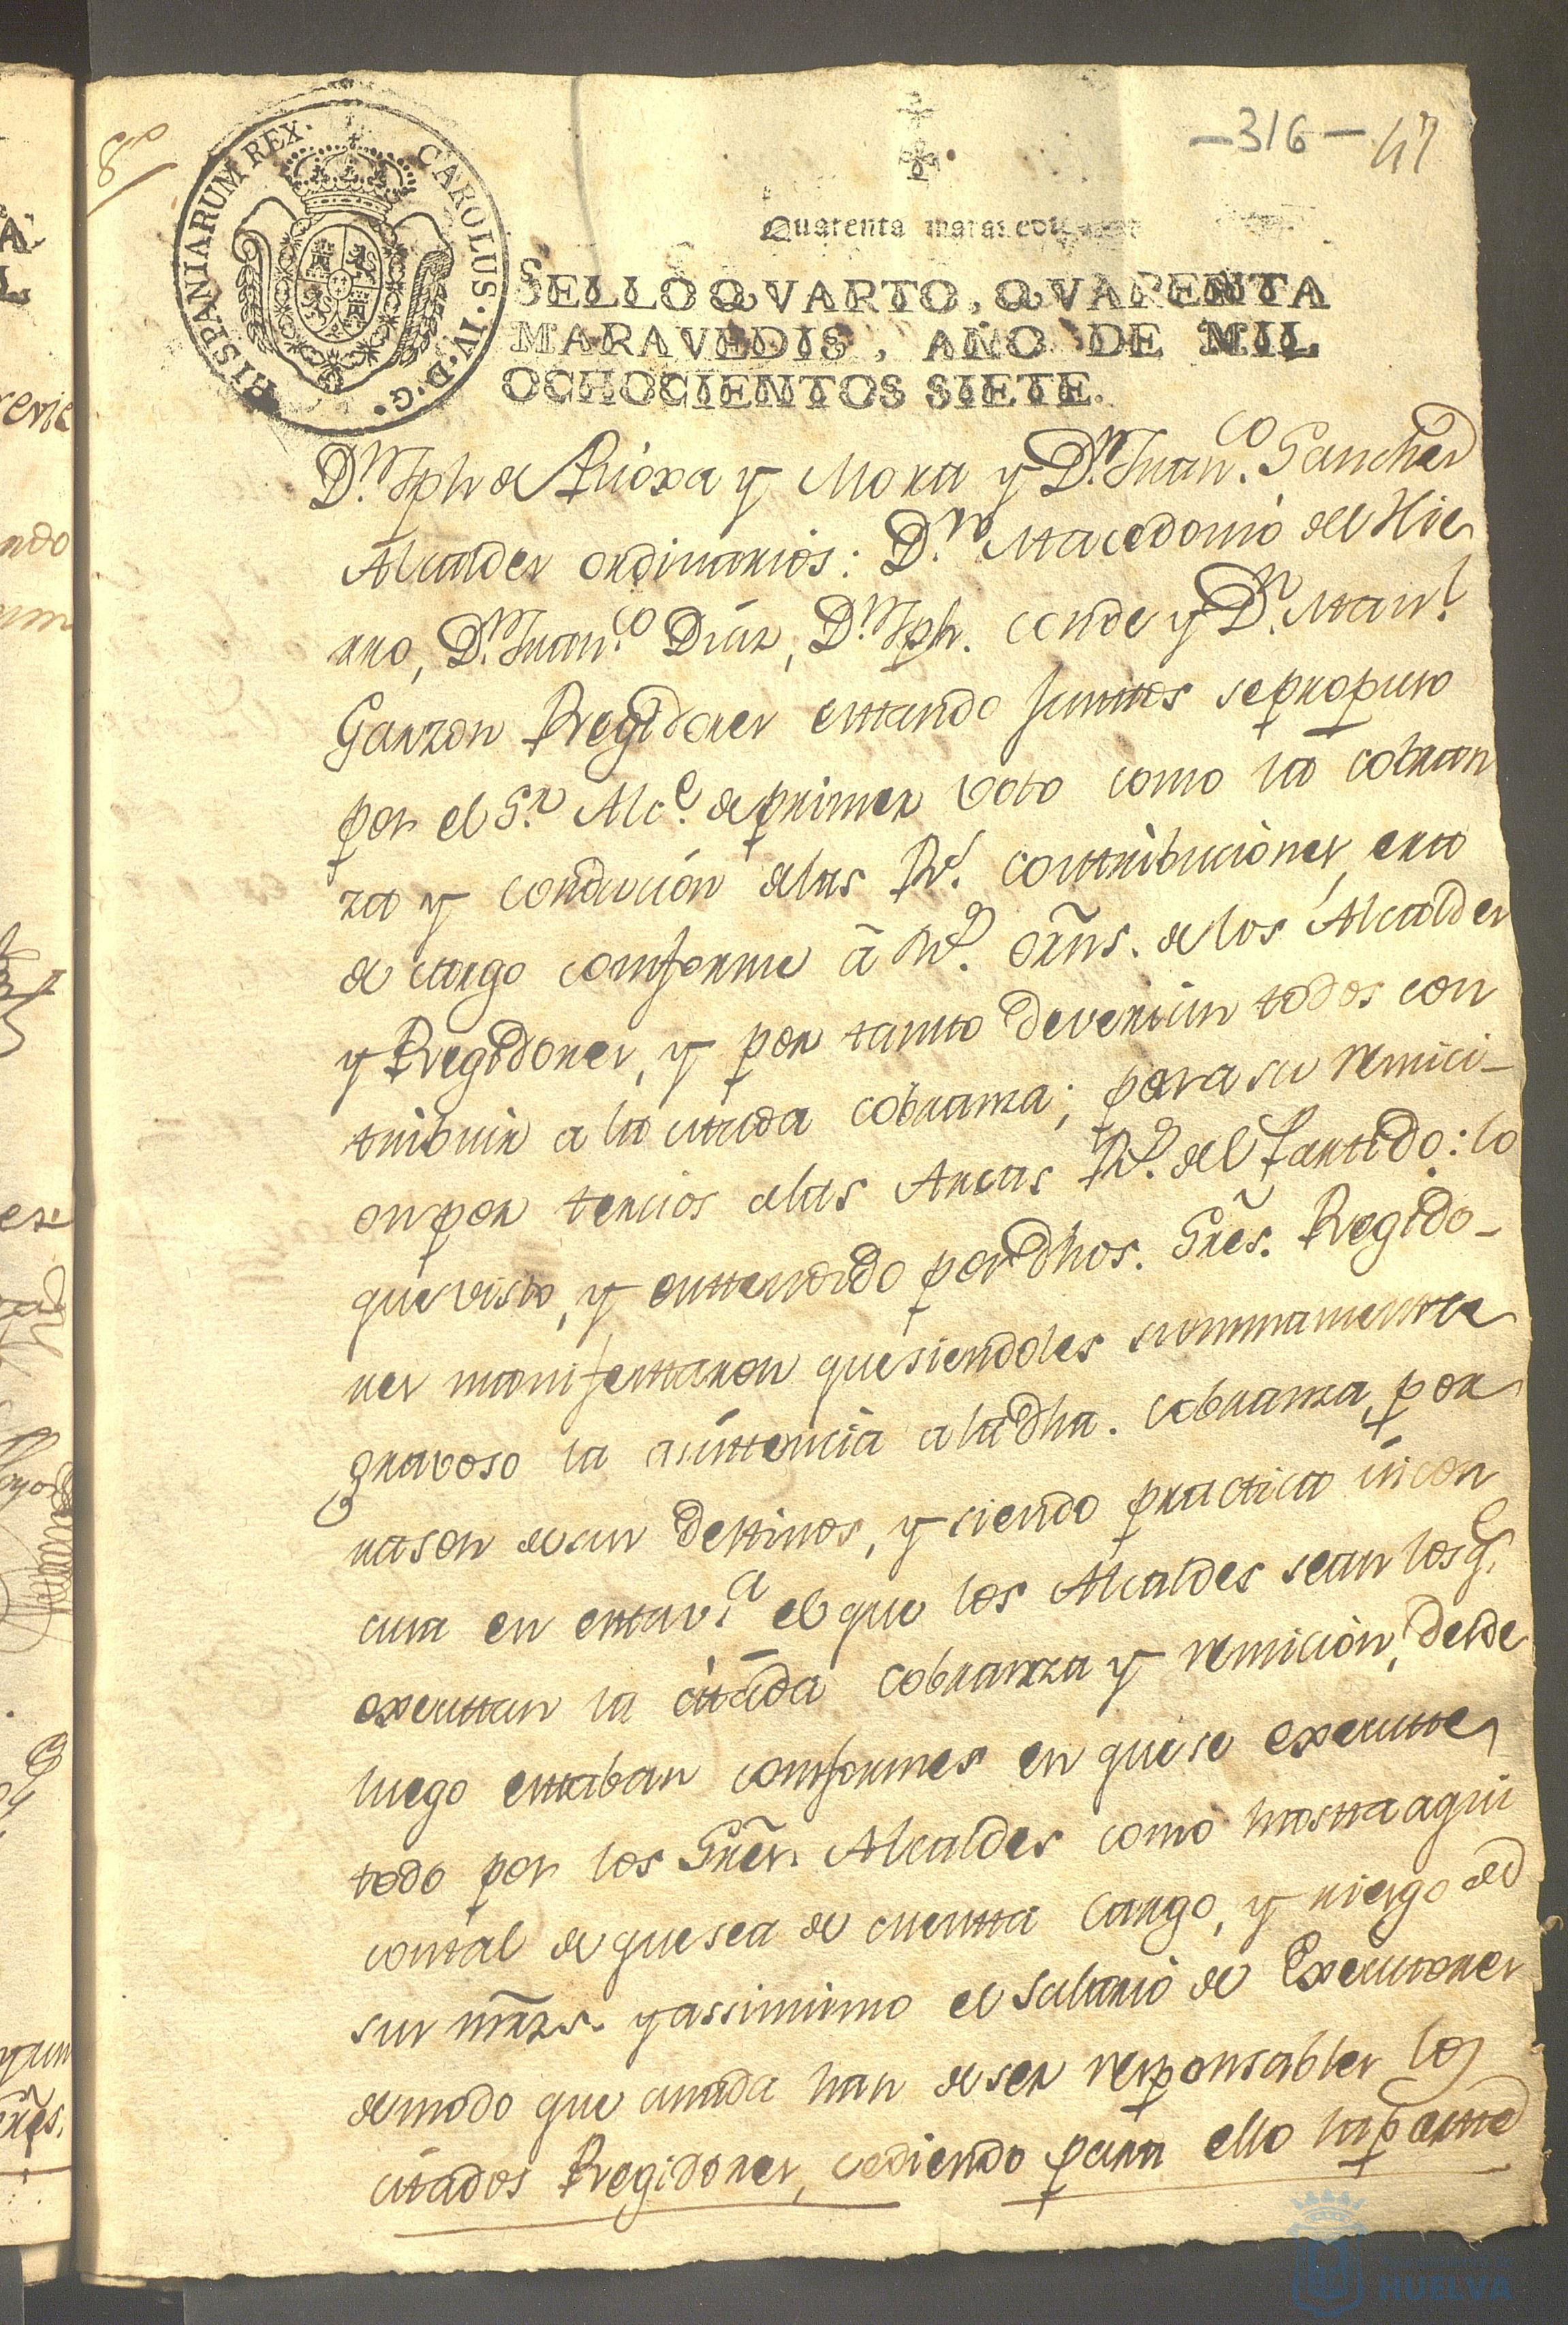 -316- 47
HISPANIARUM REX. CAROLUS. IV. D. G.
Quarenta maravedis
SELLO QVARTO, QVARENTA
MARAVEDIS, AÑO DE MIL
OCHOCIENTOS SIETE.
Dn. Jph de Rioxa y Mora y Dn. Franco. Sanches
Alcaldes ordinarios: Dn. Macedonio del Hie
rro, Dn. Franco. Diaz, Dn. Jph. Conde y Dn. Manl.
Garzon Rregidores esttando junttos se propuso
por el Sr. Alce. de primer voto como la cobran
za y condución de las Rs. conttribuciones, esta
a cargo comforme â Rs. orñs. de los Alcaldes
y Rregidores, y por tanto deverian todos con
tribuir a la citada cobranza; para su remici-
on por tercios a las Arcas Rs. del Parttido: lo
que visto, y enttendido por dhos. Sres. Rregido-
res manifesttaron que siendoles summamentte
gravoso la asisttencia a la dha. cobranza, por
rason de sus desttinos, y siendo practica incon
cusa en esta va. el que los Alcaldes sean los qe.
executtan la cittada cobranza y remición, desde
luego esttaban comformes en que se executte
todo por los Sres. Alcaldes como hastta aqui
con tal de que sea de cuentta cargo, y riesgo de
sus mrzs. y assimismo el salario de Executores
de modo que a nada han de ser responsables los
citados Rregidores, cediendo para ello la partte
HUELVA